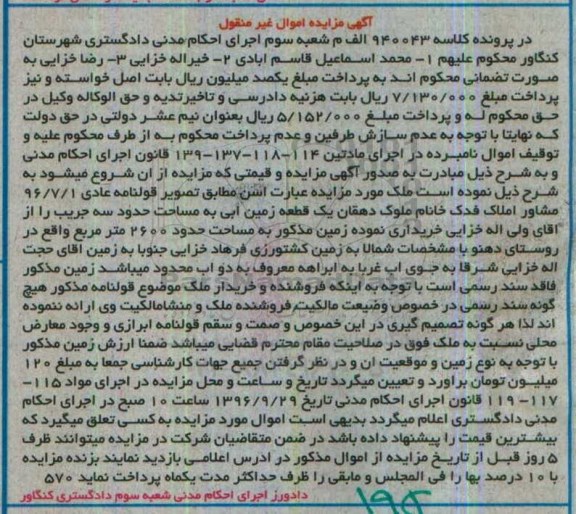 آگهی مزایده اموال غیر منقول
در پرونده کلاسه ۹۴۰۰۴۳ الف م شعبه سوم اجرای احکام مدنی دادگستری شهرستان
کنگاور محکوم علیهم ۱- محمد اسماعیل قاسم ابادی ۲- خیراله خزایی ۳- رضا خزایی به
صورت تضمانی محکوم اند به پرداخت مبلغ یکصد میلیون ریال بابت اصل خواسته و نیز
پرداخت مبلغ ۷/۱۳۰/۰۰۰ ریال بابت هزینه دادرسی و تاخیرتدیه و حق الوکاله وکیل در
حق محکوم له و پرداخت مبلغ ۵/۱۵۲/۰۰۰ ریال بعنوان نیم عشر دولتی در حق دولت
که نهایتا با توجه به عدم سازش طرفین و عدم پرداخت محکوم به از طرف محکوم علیه و
توقیف اموال نامبرده در اجرای مادتین ۱۱۴-۱۱۸-۱۳۷-۱۳۹ قانون اجرای احکام مدنی
و به شرح ذیل مبادرت به صدور آگهی مزایده و قیمتی که مزایده از ان شروع میشود به
شرح ذیل نموده است ملک مورد مزایده عبارت است مطابق تصویر قولنامه عادی ۹۶/۷/۱
مشاور املاک فدک خانام ملوک دهقان یک قطعه زمین آبی به مساحت حدود سه جریب را از
اقای ولی اله خزایی خریداری نموده زمین مذکور به مساحت حدود ۲۶۰۰ متر مربع واقع در
روستای دهنو با مشخصات شمالا به زمین کشتورزی فرهاد خزایی جنوبا به زمین اقای حجت
اله خزایی شرقا به جوی اب غربا به ابراهه معروف به دو اب محدود میباشد زمین مذکور
فاقد سند رسمی است با توجه به اینکه فروشنده و خریدار ملک موضوع قولنامه مذکور هیچ
گونه سند رسمی در خصوص وضیعت مالکیت فروشنده ملک و منشامالکیت وی ارائه ننموده
اند لذا هر گونه تصمیم گیری در این خصوص و صمت و سقم قولنامه ابرازی و وجود معارض
محلی نسبت به ملک فوق در صلاحیت مقام محترم قضایی میباشد ضمنا ارزش زمین مذکور
با توجه به نوع زمین و موقعیت ان و در نظر گرفتن جمیع جهات کارشناسی جمعا به مبلغ ۱۲۰
میلیون تومان براورد و تعیین میگردد تاریخ و ساعت و محل مزایده در اجرای مواد ۱۱۵-
۱۱۷- ۱۱۹ قانون اجرای احکام مدنی تاریخ ۱۳۹۶/۹/۲۹ ساعت ۱۰ صبح در اجرای احکام
مدنی دادگستری اعلام میگردد بدیهی است اموال مورد مزایده به کسی تعلق میگیرد که
بیشترین قیمت را پیشنهاد داده باشد در ضمن متقاضیان شرکت در مزایده میتوانند ظرف
۵ روز قبل از تاریخ مزایده از اموال مذکور در ادرس اعلامی بازدید نمایند بزنده مزایده
با ۱۰ درصد بها را فی المجلس و مابقی را ظرف حداکثر مدت یکماه پرداخت نماید ۵۷۰
دادورز اجرای احکام مدنی شعبه سوم دادگستری کنگاور